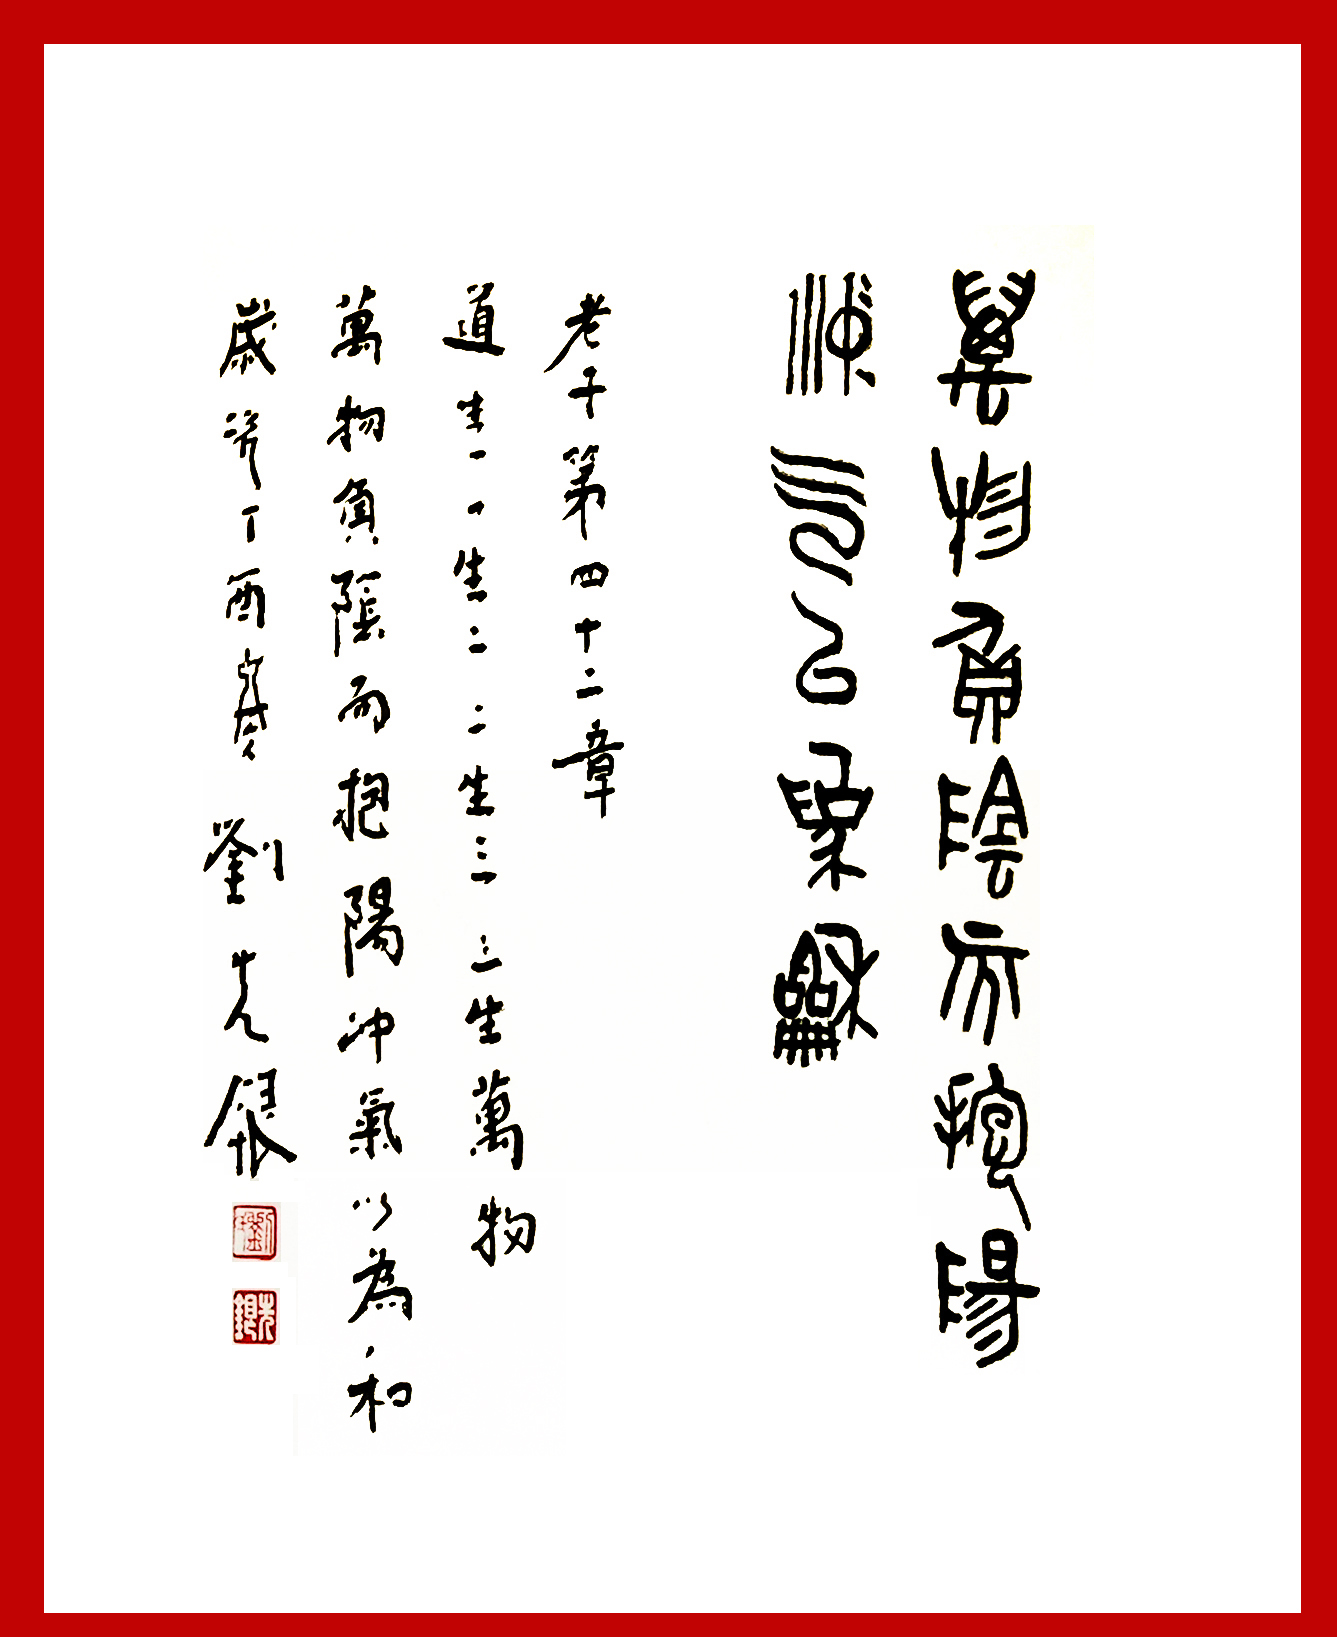 萬物負陰而抱陽
沖气以為龢
老子第四十二章
道生一一生二二生三三生萬物
萬物負陰而抱陽沖氣以為和
歲次丁酉寒劉先銀
劉
先銀